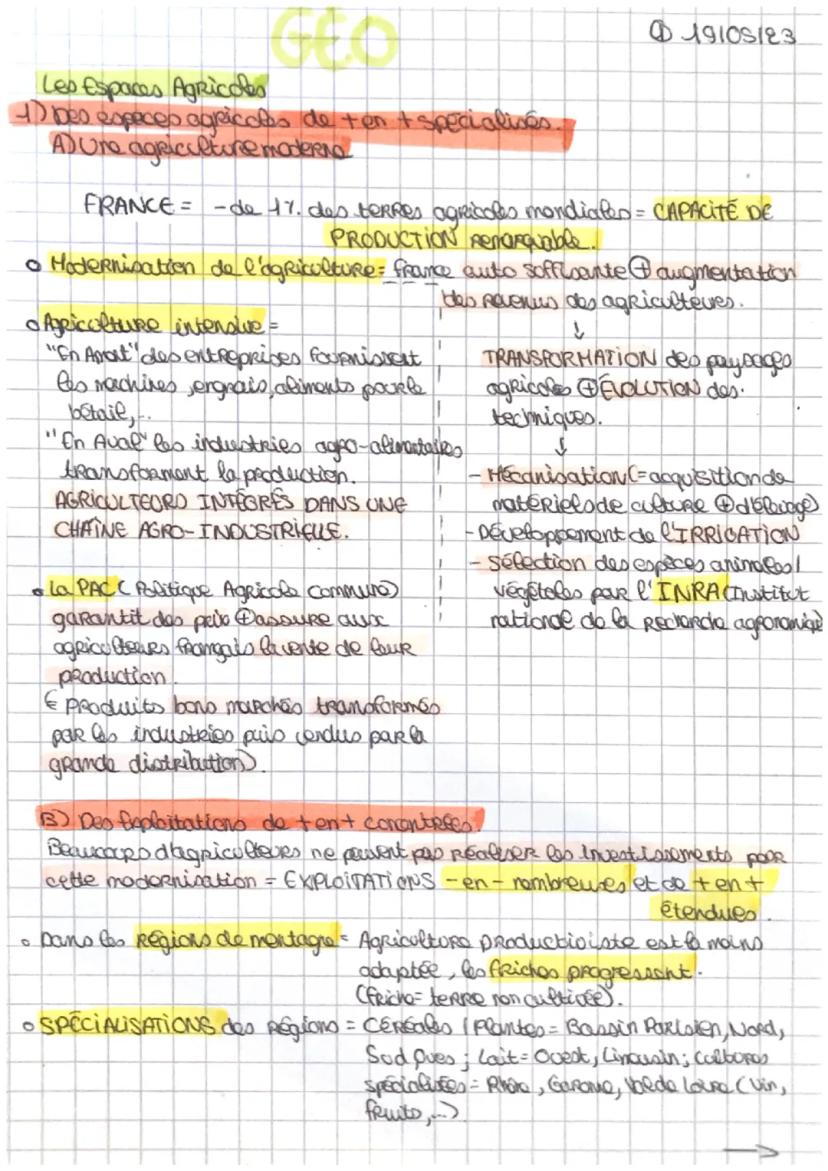 GEO
① 19/05/23
Les Espaces Agricoles
1) Des espaces agricoles de + en + spécialisés.
A) Une agriculture moderne
FRANCE = - de 1% des terres agricoles mondiales = CAPACITÉ DE
PRODUCTION remarquable.
o Modernisation de l'agriculture = france auto suffisante ⊕ augmentation
des revenus des agriculteurs.
↓
TRANSFORMATION des paysages
agricoles ⊕ ÉVOLUTION des
techniques.
↓
- Mécanisation (= acquisition de
matériels de culture ⊕ d'élevage)
- Développement de l'IRRIGATION
- Sélection des espèces animales /
végétales par l'INRA (Institut
national de la Recherche agronomique
o Agriculture intensive =
"En Amont" des entreprises fournissent
les machines, engrais, aliments pour le
bétail,..
"En Aval" les industries agro-alimentaires
transforment la production.
AGRICULTEURS INTÉGRÉS DANS UNE
CHAÎNE AGRO-INDUSTRIELLE.
• La PAC ( Politique Agricole Commune)
garantit des prix ⊕ assure aux
agriculteurs français la vente de leur
production.
Produits bons marchés transformés
par les industries puis vendus par la
grande distribution).
B) Des Exploitations de + en + concentrées.
Beaucoup d'agriculteurs ne peuvent pas réaliser les investissements pour
cette modernisation = EXPLOITATIONS - en - nombreuses et de + en +
étendues.
o Dans les régions de montagne = Agriculture productiviste est la moins
adaptée, les friches progressent.
(friche = terre non cultivée).
o SPÉCIALISATIONS des régions = Céréales / Plantes = Bassin Parisien, Nord,
Sud Ques ; Lait = Ouest, Limousin ; cultures
spécialisées = Rhône, Garonne, Val de Loire (Vin,
fruits,...)
→